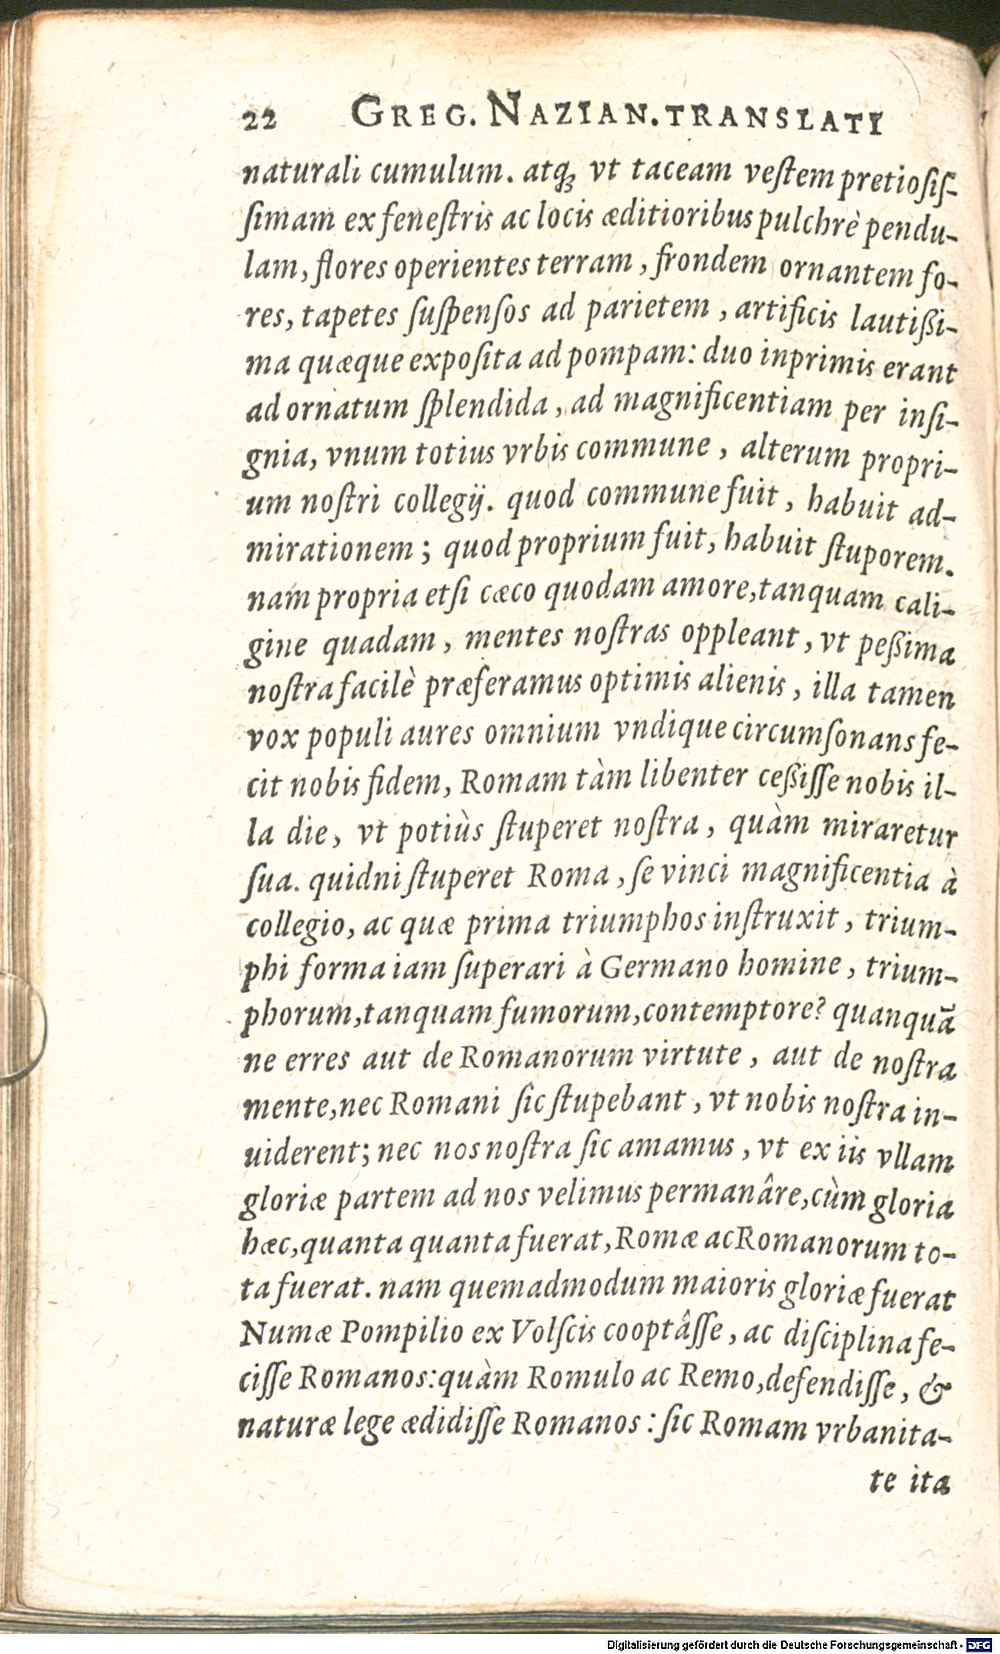 22 GREG. NAZIAN. TRANSLATI
naturali cumulum. atq́ꝫ vt taceam veſtem pretioſiſ-
ſimam ex feneſtris ac locis æditioribus pulchrè pendu-
lam, flores operientes terram, frondem ornantem fo-
res, tapetes ſuſpenſos ad parietem, artificis lautißi-
ma quæque expoſita ad pompam: duo inprimis erant
ad ornatum ſplendida, ad magnificentiam per inſi-
gnia, vnum totius vrbis commune, alterum propri-
um noſtri collegij. quod commune fuit, habuit ad-
mirationem; quod proprium fuit, habuit ſtuporem.
nam propria etſi cæco quodam amore, tanquam cali-
gine quadam, mentes noſtras oppleant, vt peßima
noſtra facilè præferamus optimis alienis, illa tamen
vox populi aures omnium vndique circumſonans fe-
cit nobis fidem, Romam tàm libenter ceßiſſe nobis il-
la die, vt potiùs ſtuperet noſtra, quàm miraretur
ſua. quidni ſtuperet Roma, ſe vinci magnificentia à
collegio, ac quæ prima triumphos inſtruxit, trium-
phi forma iam ſuperari à Germano homine, trium-
phorum, tanquam fumorum, contemptore? quanquã
ne erres aut de Romanorum virtute, aut de noſtra
mente, nec Romani ſic ſtupebant, vt nobis noſtra in-
uiderent; nec nos noſtra ſic amamus, vt ex iis vllam
gloriæ partem ad nos velimus permanâre, cùm gloria
hæc, quanta quanta fuerat, Romæ ac Romanorum to-
ta fuerat. nam quemadmodum maioris gloriæ fuerat
Numæ Pompilio ex Volſcis cooptâſſe, ac diſciplina fe-
ciſſe Romanos: quàm Romulo ac Remo, defendiſſe, &
naturæ lege ædidiſſe Romanos: ſic Romam vrbanita-
te ita
Digitalisierung gefördert durch die Deutsche Forschungsgemeinschaft - DFG